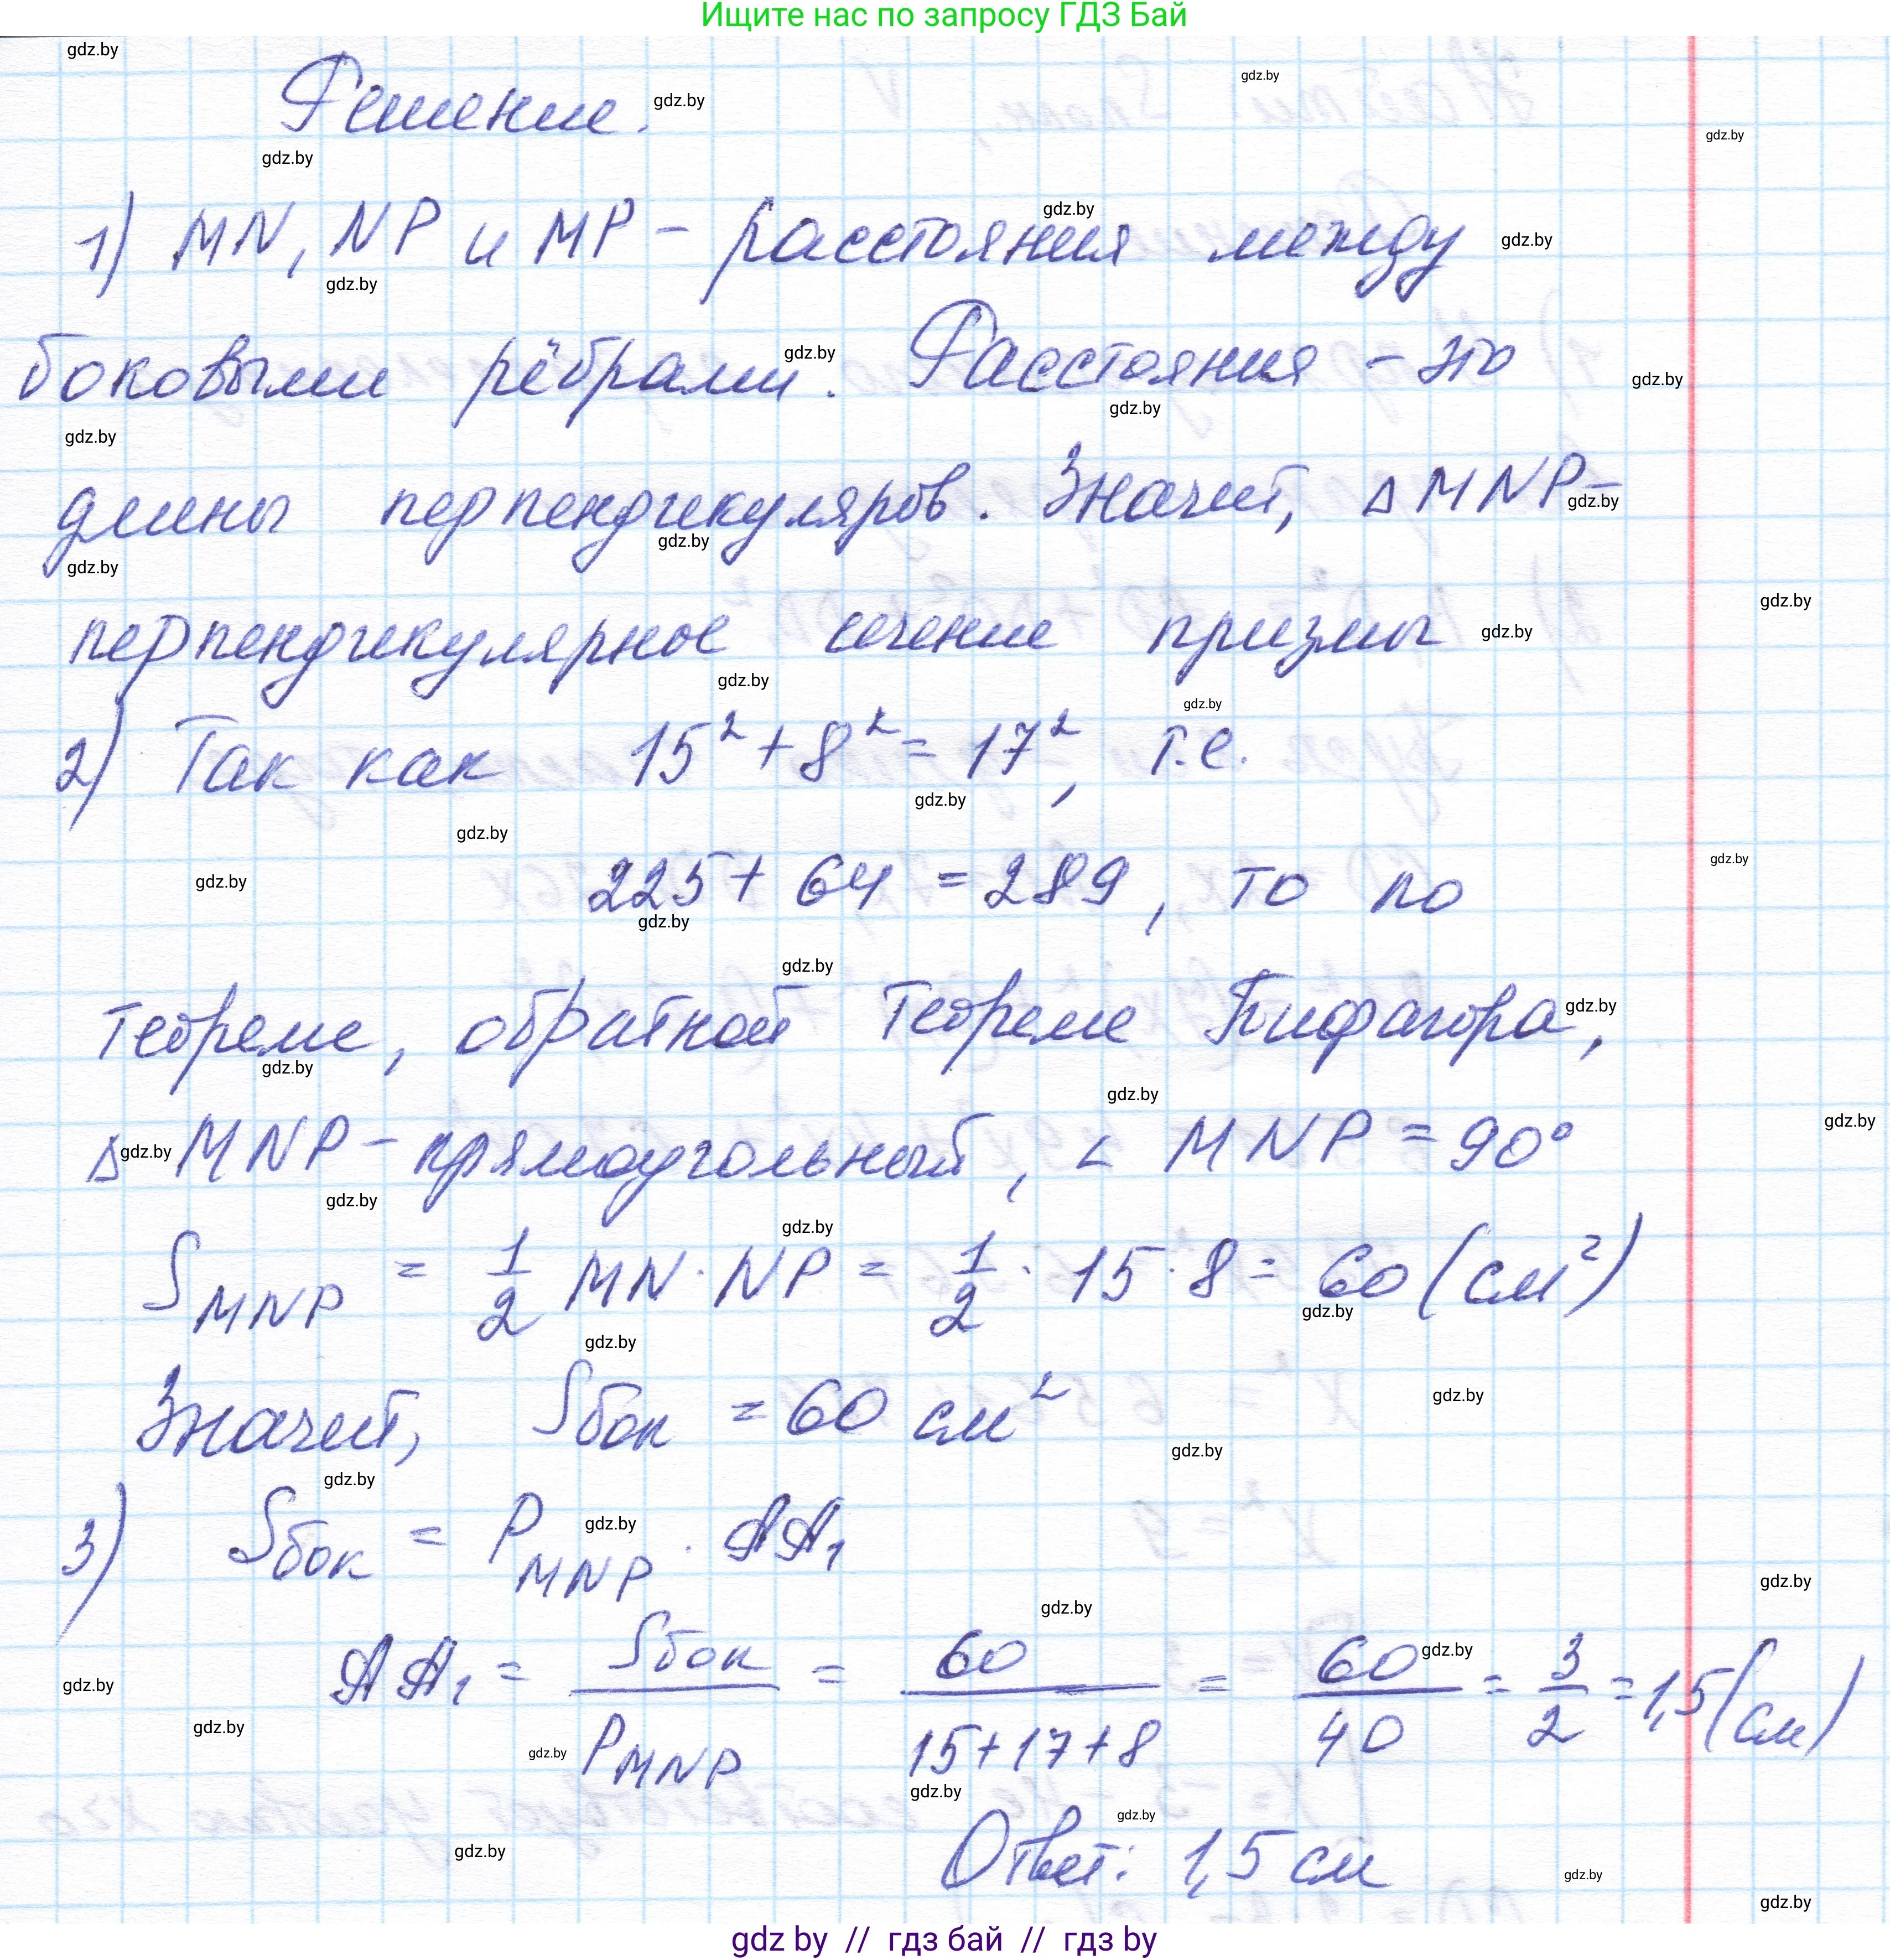 Ищите нас по запросу ГДЗ Бай
Решение.
1) MN, NP и MP - расстояния между
боковыми рёбрами. Расстояния - это
длины перпендикуляров. Значит, ΔMNP-
перпендикулярное сечение призмы
2) Так как 15² + 8² = 17², т.е.
225 + 64 = 289, то по
теореме, обратной теореме Пифагора,
Δ MNP - прямоугольный, ∠ MNP = 90°
S_MNP = 1/2 MN · NP = 1/2 · 15 · 8 = 60 (см²)
Значит, Sбок = 60 см²
3) Sбок = P_MNP · AA₁
AA₁ = Sбок / P_MNP = 60 / (15+17+8) = 60/40 = 3/2 = 1,5 (см)
Ответ: 1,5 см
gdz by // гдз бай // гдз by